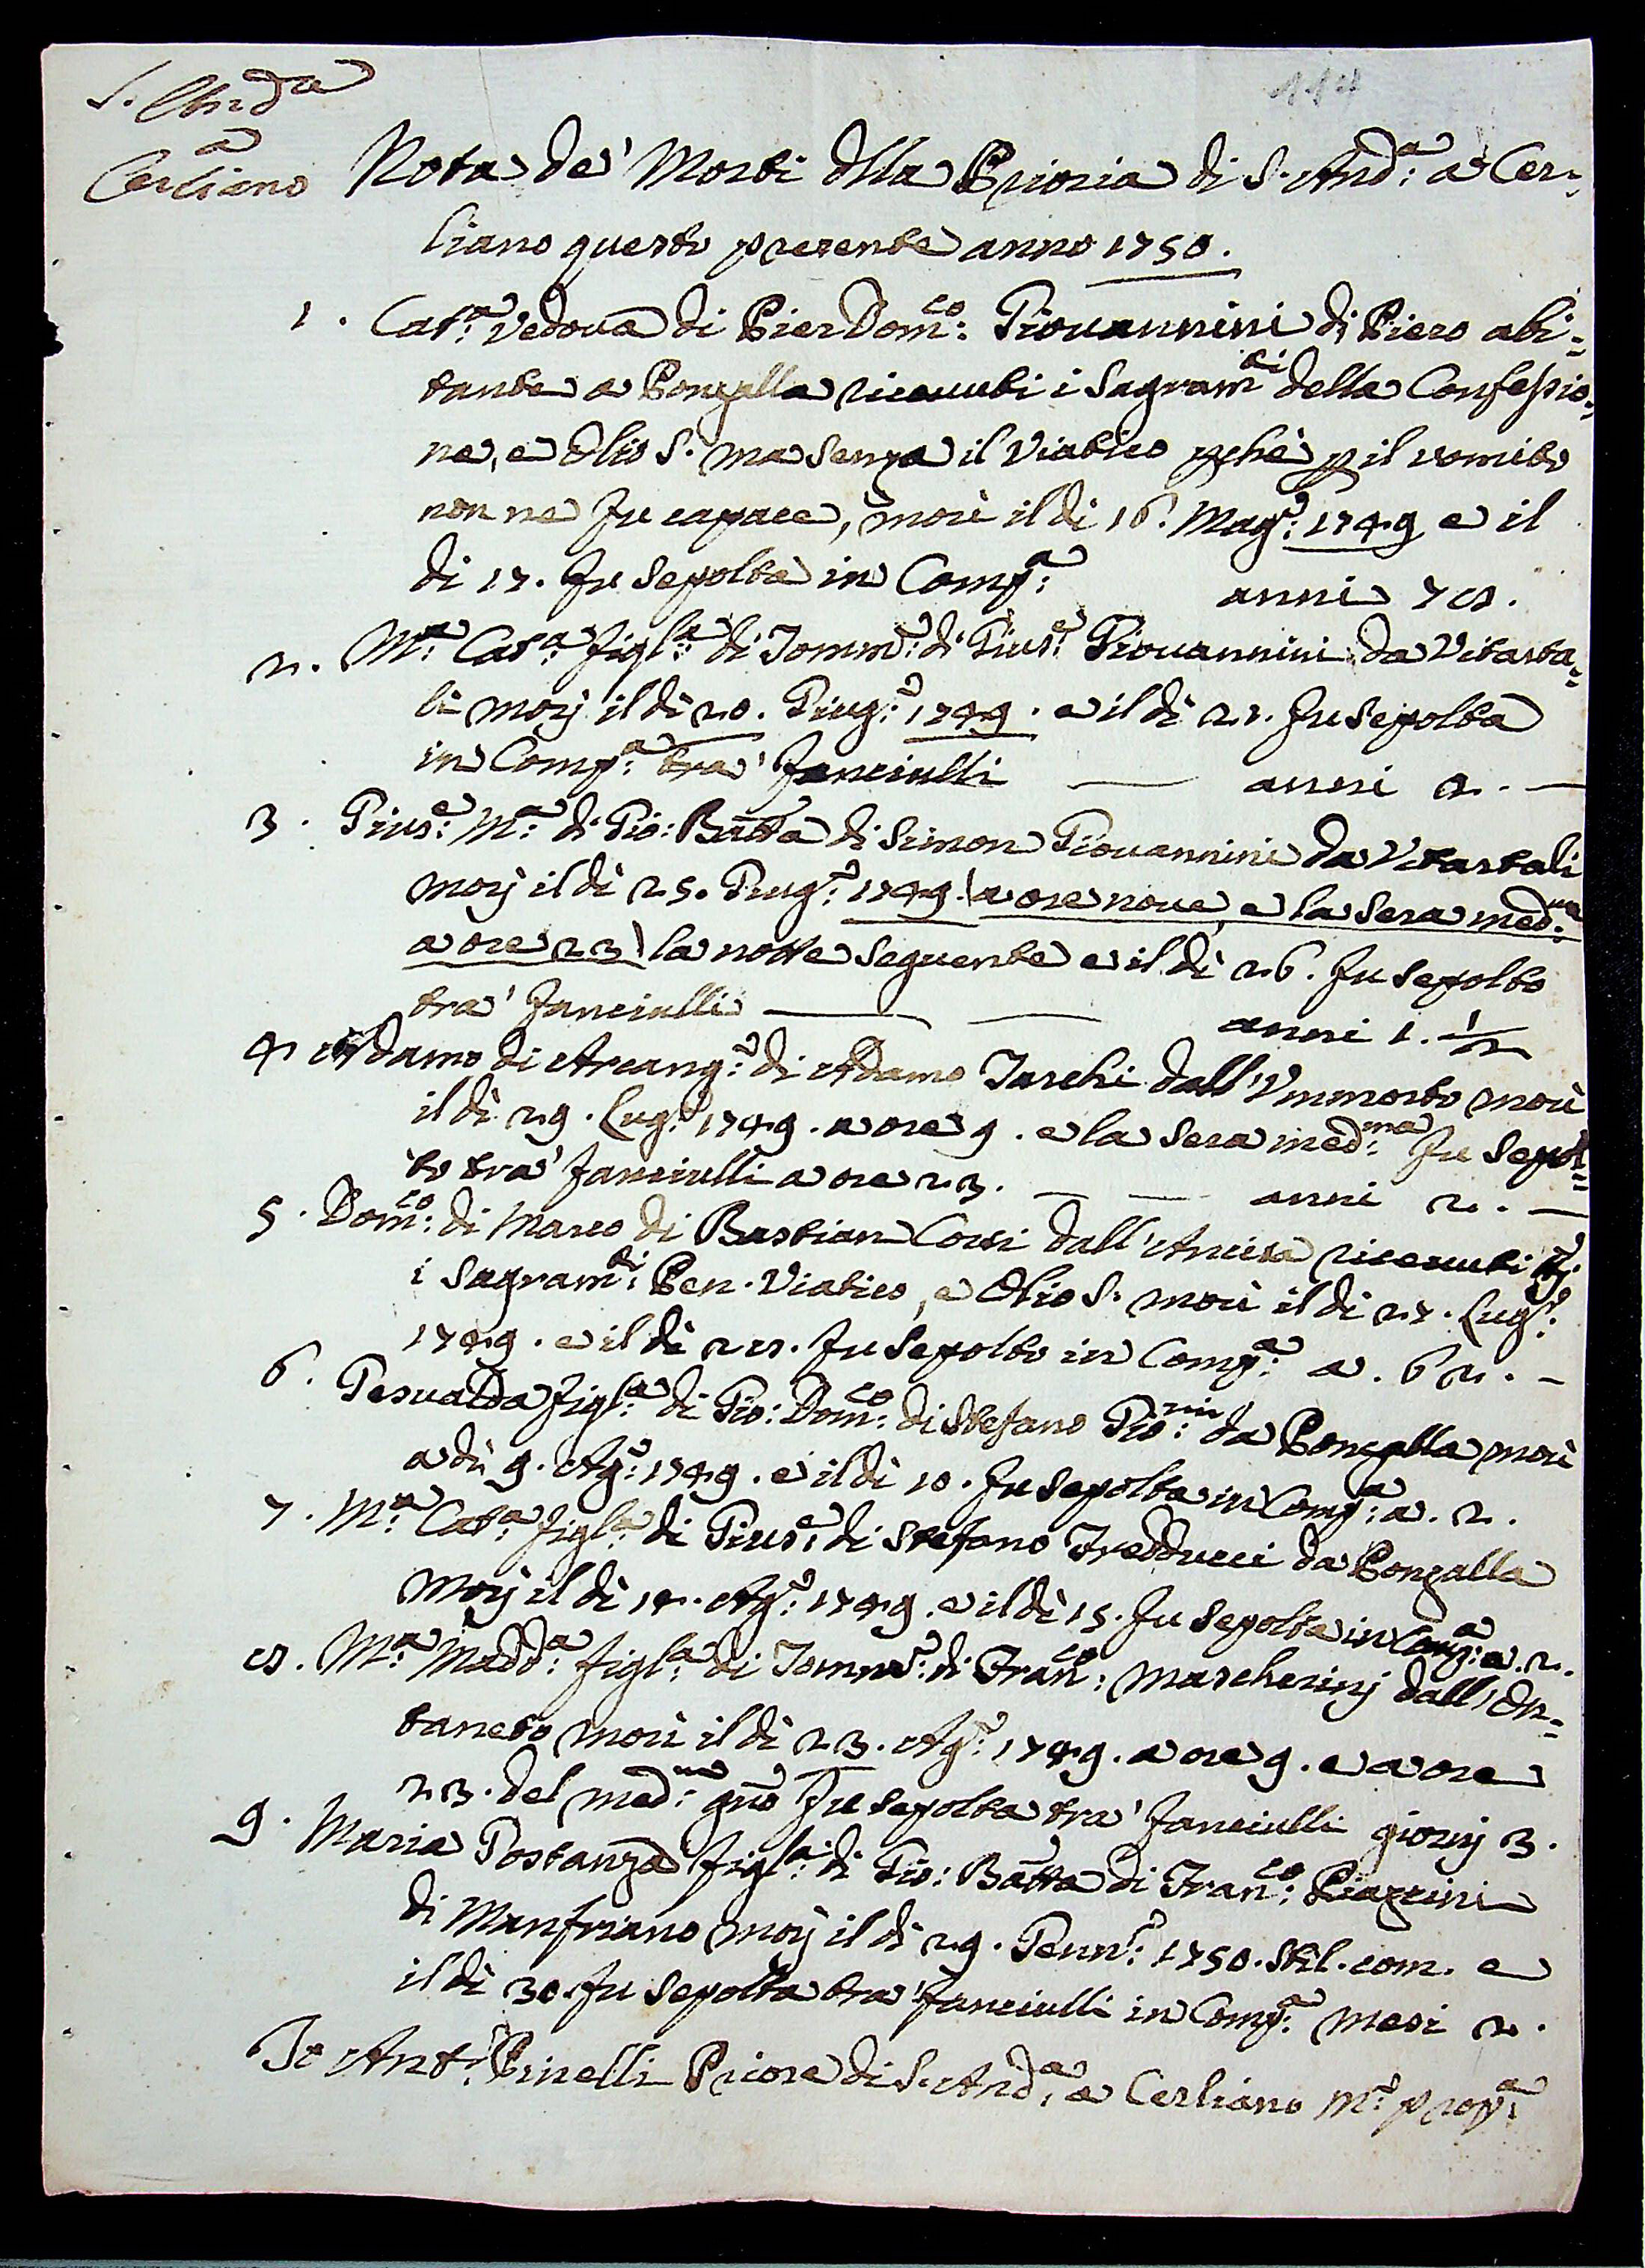 S. And.a
a
Cerliano
114
Nota de' Morti dlla Prioria di S. And.a: a Cer=
liano questo presente anno 1750.
1. Cat.a: vedova di Pier Dom.co: Giovannini di Piero abi=
tante a Ponzalla ricevuti i Sagram.ti della Confessio=
ne, e Olio S. ma senza il Viatico pche p il vomito
non ne fu capace, morì il di 16. Mag.o: 1749 e il
di 17. fu sepolta in Comp.a: anni 78.
2. M.a: Cat.a: figl.a: di Tomm.o: di Gius.e: Giovannini da Vitarta=
li morj il dì 20. Giug.o: 1749. e il dì 21. fu sepolta
in Comp.a: tra' fanciulli — anni 2. —
3. Gius.e: M.a: di Gio: Batta di Simon Giovannini da Vitartali
morj il dì 25. Giug.o: 1749. \a ore nove, e la sera med.ma
a ore 23\ la notte seguente e il dì 26. fu sepolto
tra' fanciulli — — anni 1. 1/2
4. Adamo di Arcang.o: di Adamo Tarchi dall'Ummorto morì
il dì 29. Lug.o 1749. a ore 9. e la sera med.ma: fu sepol=
to tra' fanciulli a ore 23. — — anni 2. —
5. Dom.co: di Marco di Bastian Corsi dall'Ancisa ricevuti
i Sagram.ti: Pen. Viatico, e Olio S. morì il di 27. Lug.o:
1749. e il dì 28. fu sepolto in Comp.a: a. 62. —
6. Gesualda figl.a: di Gio: Dom.co: di Stefano Gio:nini da Ponzalla morì
a dì 9. Ag.o: 1749. e il dì 10. fu sepolta in Comp.a: a. 2.
7. M.a: Cat.a: figl.a: di Gius.e: di Stefano Fredducci da Ponzalla
morj il dì 14. Ag.o: 1749. e il dì 15. fu sepolta in Comp.a: a. 2.
8. M.a: Madd.a: figl.a: di Tomm.o: di Fran.co: Marcherinj dall'Or=
taneto morì il dì 23. Ag.o: 1749. a ore 9. e a ore
23. del med.mo: gno fu sepolta tra' fanciulli giorni 3.
9. Maria Gostanza figl.a: di Gio: Batta di Fran.co: Piazzini
di Manfriano morj il dì 29. Genn.o: 1750. Stil. com. e
il dì 30. fu sepolta tra' fanciulli in Comp.a: mesi 2.
Io Ant.o: Pinelli Priore di S. And.a: a Cerliano M.o: prop.a: